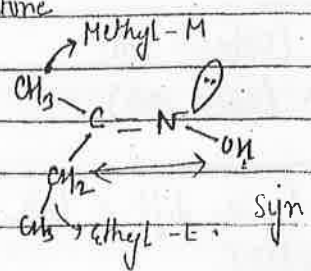 time
Methyl-M
CH3
C = N
OH
CH2
Syn
CH3 Ethyl-E.